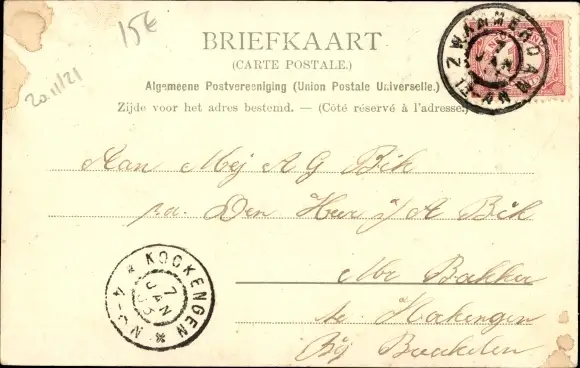 15€
20.1/21
BRIEFKAART
(CARTE POSTALE.)
Algemeene Postvereeniging (Union Postale Universelle.)
Zijde voor het adres bestemd. — (Côté réservé à l'adresse.)
ZWAMMERDAM
Aan Mej A G Bik
p.a. Den Heer A Bik
Mr Bakker
te Kokengen
Bij Breukelen
KOCKENGEN
7 JAN
4-5 N